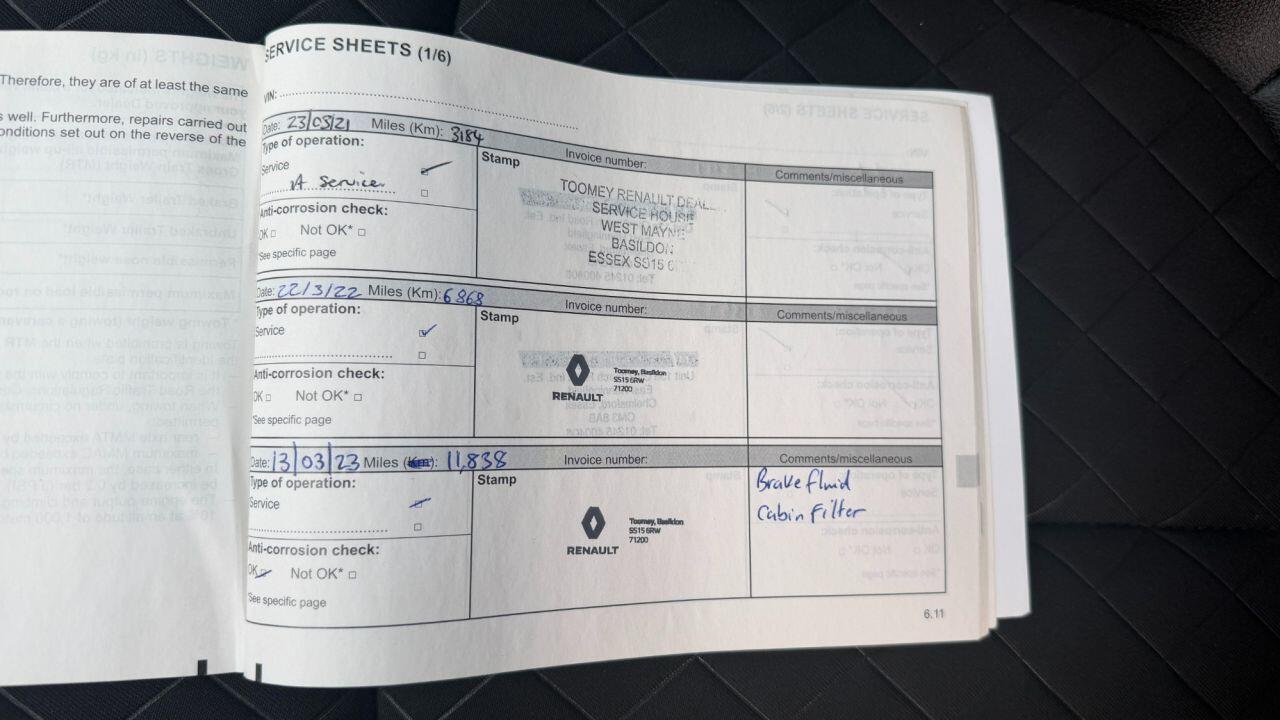 Therefore, they are of at least the same
well. Furthermore, repairs carried out
conditions set out on the reverse of the
SERVICE SHEETS (1/6)
VIN:
Date: 23/03/21 Miles (Km): 3184
Type of operation:
Service
A Service
Anti-corrosion check:
OK Not OK*
*See specific page
Stamp
Invoice number:
TOOMEY RENAULT DEAL
SERVICE HOUSE
WEST MAYNE
BASILDON
ESSEX SS15 6
Comments/miscellaneous
Date: 22/3/22 Miles (Km): 6868
Type of operation:
Service
Anti-corrosion check:
OK Not OK*
*See specific page
Stamp
Invoice number:
RENAULT
Toomey, Basildon
SS15 6RW
71200
Comments/miscellaneous
Date: 13/03/23 Miles (Km): 11,838
Type of operation:
Service
Anti-corrosion check:
OK Not OK*
*See specific page
Stamp
Invoice number:
RENAULT
Toomey, Basildon
SS15 6RW
71200
Comments/miscellaneous
Brake fluid
Cabin Filter
6.11